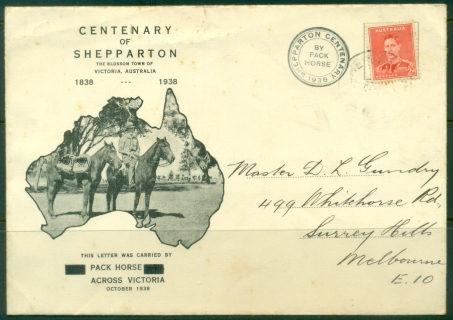 CENTENARY
OF
SHEPPARTON
THE BLOSSOM TOWN OF
VICTORIA, AUSTRALIA
1838 ... 1938
SHEPPARTON CENTENARY
BY
PACK
HORSE
1938
AUSTRALIA
Master D. L. Gundry
499 Whitehorse Rd,
Surrey Hills
Melbourne
E. 10
THIS LETTER WAS CARRIED BY
PACK HORSE
ACROSS VICTORIA
OCTOBER 1938